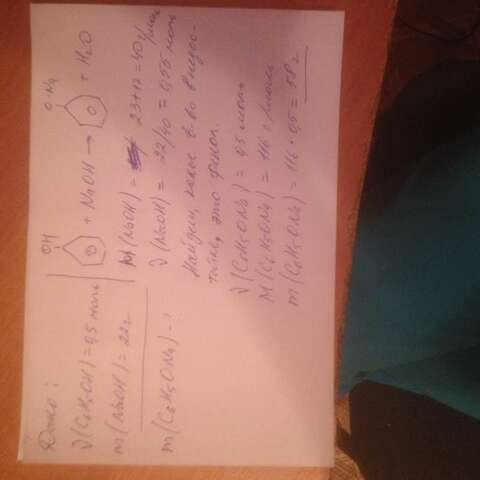 Дано:
ν(C6H5OH)=0,5 моль
m(NaOH)=22г
m(C6H5ONa)-?
OH
O-Na
+ NaOH → + H2O
M(NaOH)= 23+17=40 г/моль
ν(NaOH)= 22/40=0,55 моль
Найдем, какое в-во в недос-
татке, это фенол.
ν(C6H5ONa)=0,5 моль
M(C6H5ONa)=116 г/моль
m(C6H5ONa)=116·0,5=58г